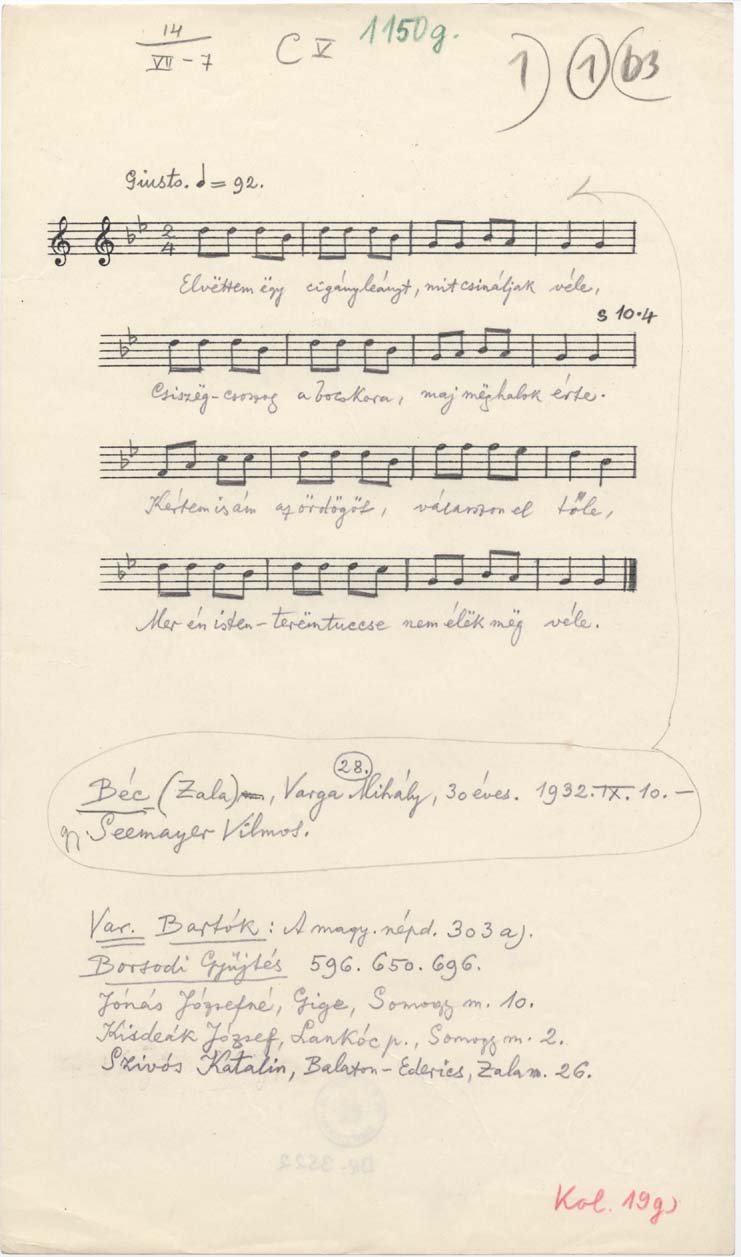 14
VII - 7
C V
1150g.
1) 1 (b3
Giusto. = 92.
2
4
Elvëttem ëgy cigányleányt, mit csináljak véle,
s 10·4
Csiszëg-csoszog a bocskora, maj mëghalok érte.
Kértem is ám az ördögöt, válasszon el tőle,
Mer én isten-terëmtuccse nem élëk mëg véle.
28.
Béc (Zala), Varga Mihály, 30 éves. 1932. IX. 10. —
gy. Seemayer Vilmos.
Var. Bartók: A magy. népd. 303 a).
Borsodi Gyűjtés 596. 650. 696.
Jónás Józsefné, Gige, Somogy m. 10.
Kisdeák József, Lankóc p., Somogy m. 2.
Szivós Katalin, Balaton-Ederics, Zala m. 26.
Kol. 19g)